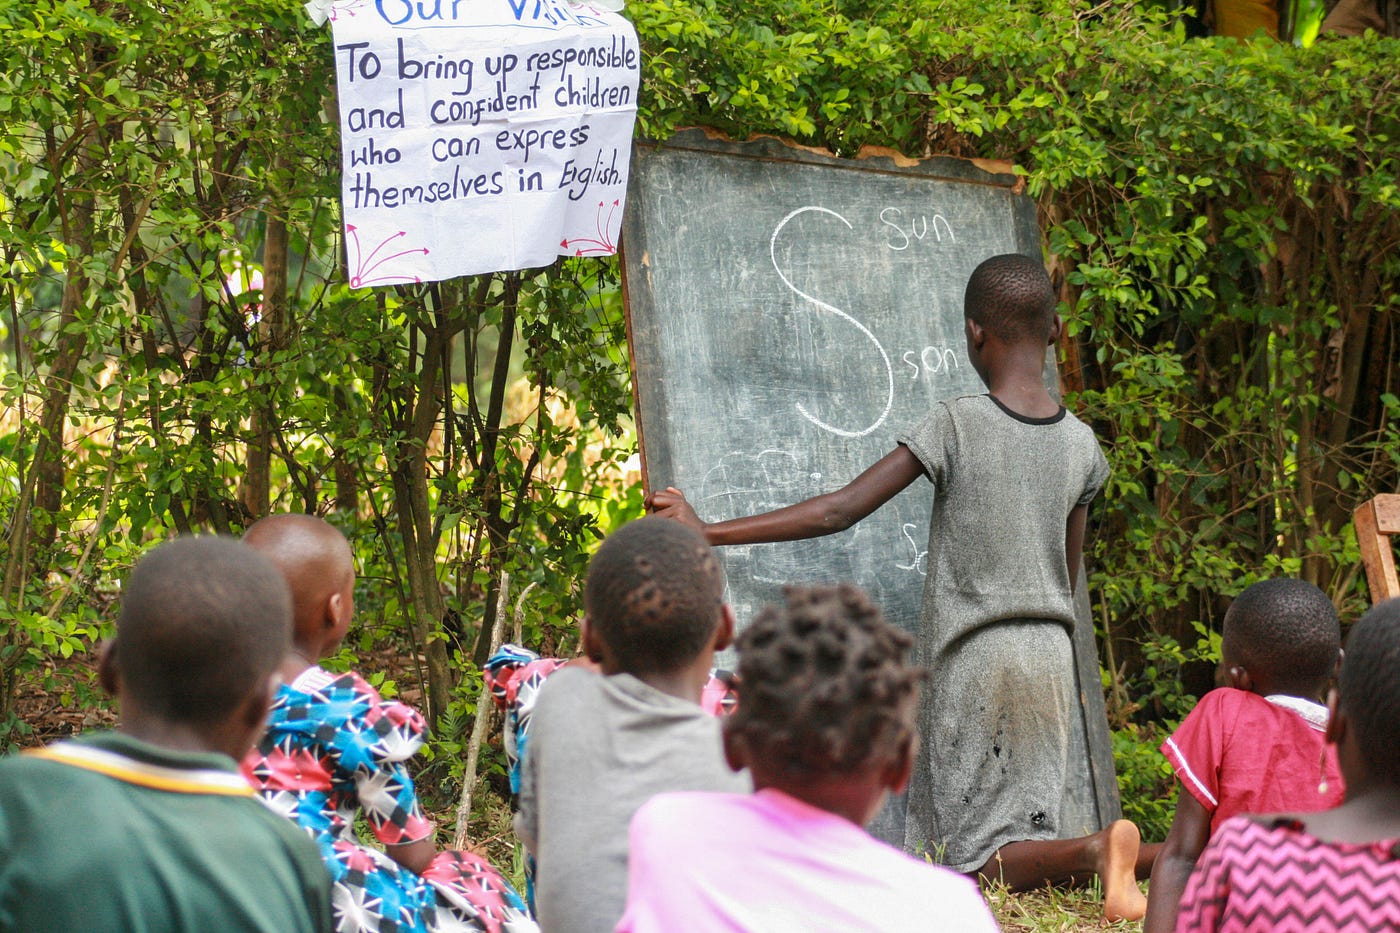 Our
To bring up responsible
and confident children
who can express
themselves in English.
S
Sun
son